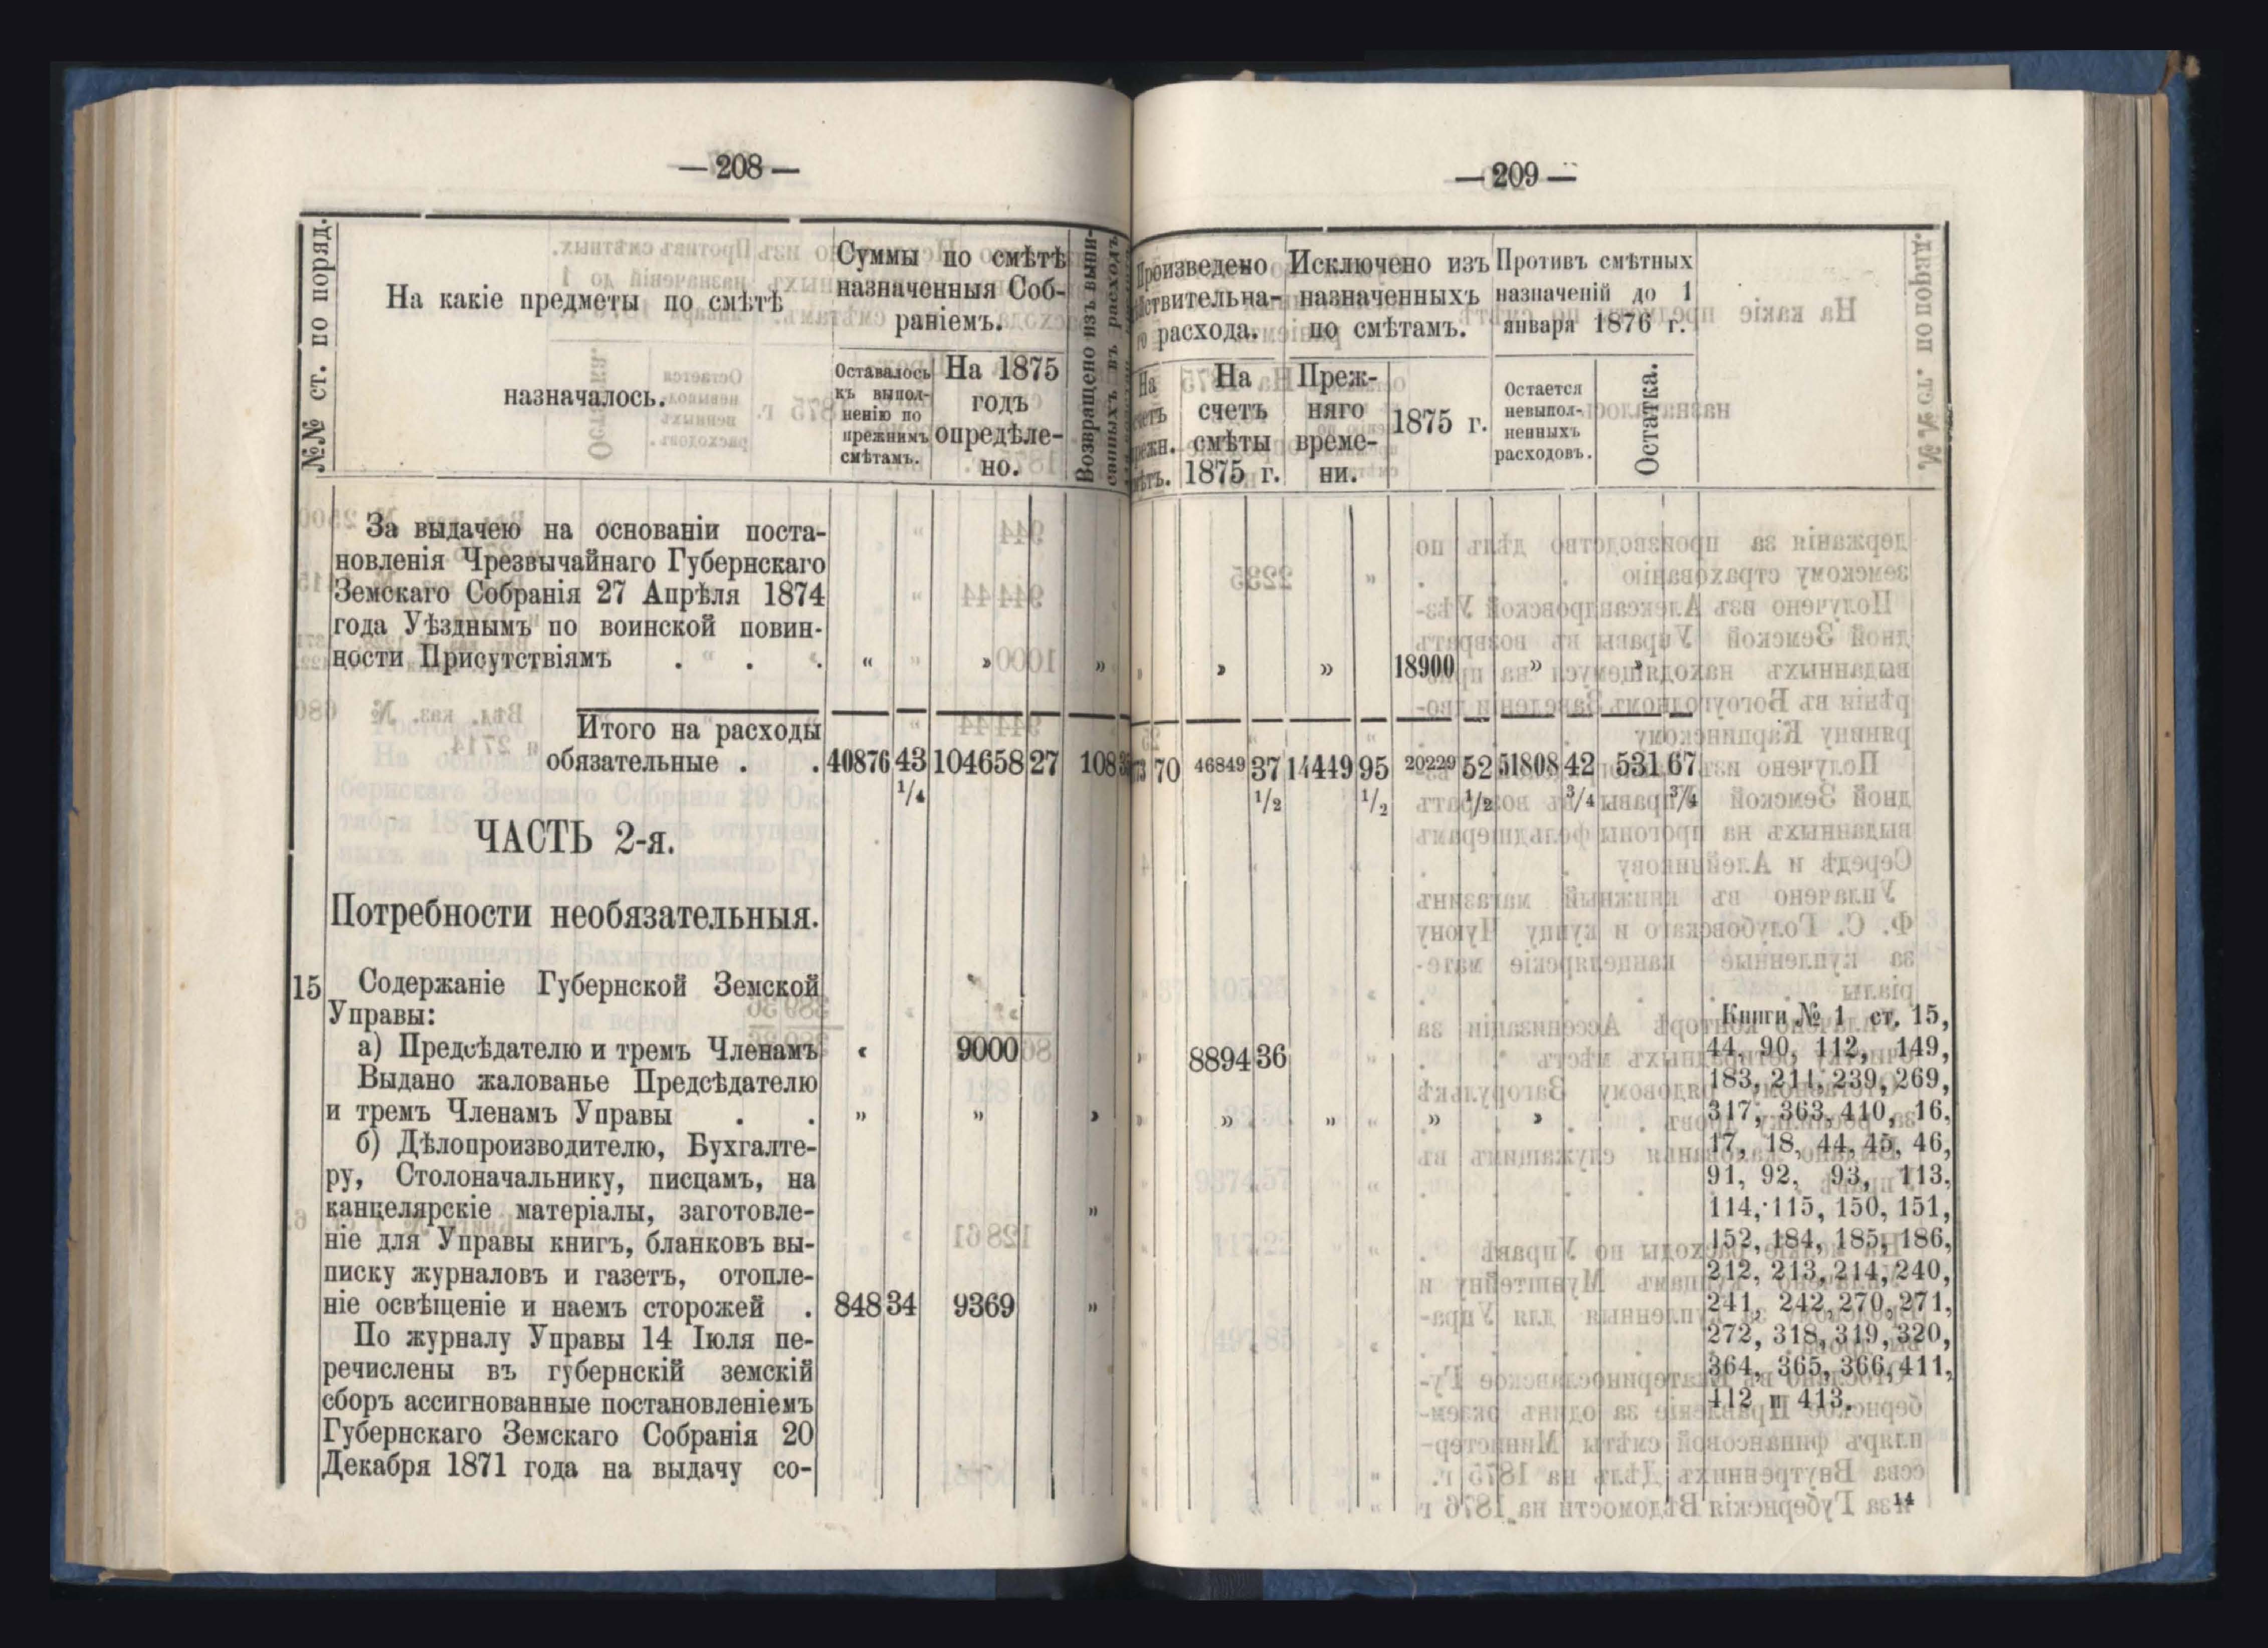 — 208 —
№№ ст. по поряд.
На какіе предметы по смѣтѣ
назначалось.
Суммы по смѣтѣ
назначенныя Соб-
раніемъ.
Оставалось
къ выпол-
ненію по
прежнимъ
смѣтамъ.
На 1875
годъ
опредѣле-
но.
Возвращено изъ выпи-
санныхъ въ расходъ
За выдачею на основаніи поста-
новленія Чрезвычайнаго Губернскаго
Земскаго Собранія 27 Апрѣля 1874
года Уѣзднымъ по воинской повин-
ности Присутствіямъ . . . « » »
Итого на расходы
обязательные . . 40876 43 1/4 104658 27 108
ЧАСТЬ 2-я.
Потребности необязательныя.
15 Содержаніе Губернской Земской
Управы:
а) Предсѣдателю и тремъ Членамъ « 9000
Выдано жалованье Предсѣдателю
и тремъ Членамъ Управы . . » » »
б) Дѣлопроизводителю, Бухгалте-
ру, Столоначальнику, писцамъ, на
канцелярскіе матеріалы, заготовле- »
ніе для Управы книгъ, бланковъ вы-
писку журналовъ и газетъ, отопле-
ніе освѣщеніе и наемъ сторожей . 848 34 9369 »
По журналу Управы 14 Іюля пе-
речислены въ губернскій земскій
сборъ ассигнованные постановленіемъ
Губернскаго Земскаго Собранія 20
Декабря 1871 года на выдачу со-
— 209 —
Произведено
расхода.
На
счетъ
смѣты
1875 г.
Исключено изъ
назначенныхъ
по смѣтамъ.
Преж-
няго
време-
ни.
1875 г.
Противъ смѣтныхъ
назначеній до 1
января 1876 г.
Остается
невыпол-
ненныхъ
расходовъ.
Остатка.
» » » 18900 » »
70 46849 37 1/2 14449 95 1/2 20229 52 1/2 51808 42 3/4 531 67 3/4
8894 36
» » » » »
Книги № 1 ст. 15,
44, 90, 112, 149,
183, 211, 239, 269,
317, 363, 410, 16,
17, 18, 44, 45, 46,
91, 92, 93, 113,
114, 115, 150, 151,
152, 184, 185, 186,
212, 213, 214, 240,
241, 242, 270, 271,
272, 318, 319, 320,
364, 365, 366, 411,
412 и 413.
14